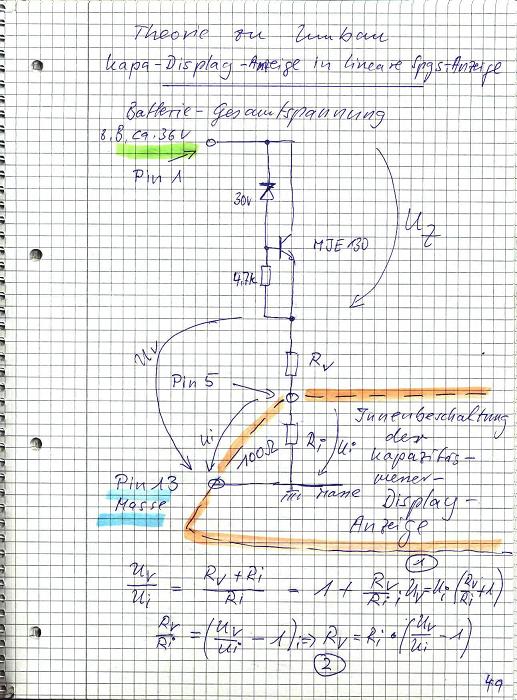 Theorie zu Umbau
Kapa-Display-Anzeige in lineare Spgs-Anzeige
Batterie-Gesamtspannung
z.B. ca. 36V
Pin 1
30V
MJE 130
4,7k
Uz
Uv
Rv
Pin 5
Ui
100Ω
Ri
Ui
Innenbeschaltung
der
Kapazitäts-
Display-
Anzeige
Pin 13
Masse
Masse
①
Uv/Ui = (Rv + Ri)/Ri = 1 + Rv/Ri ; Uv = Ui (Rv/Ri + 1)
Rv/Ri = (Uv/Ui - 1) ; => Rv = Ri · (Uv/Ui - 1)
②
49